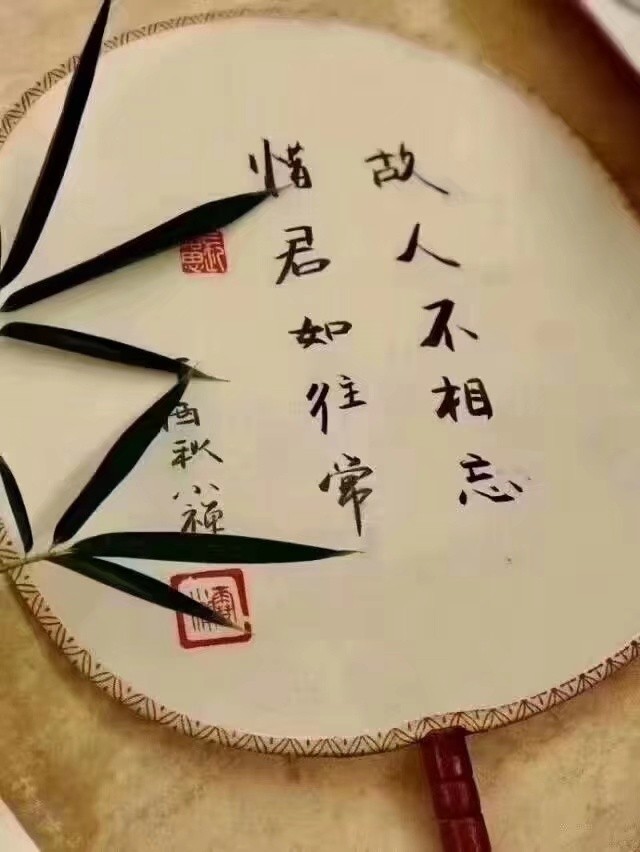 故人不相忘
惜君如往常
酉秋小禅